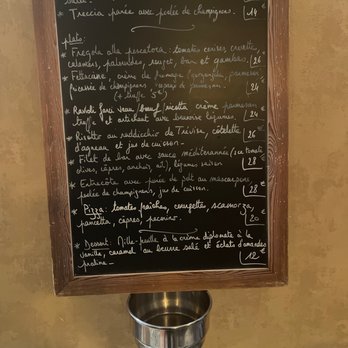 * Treccia panée avec poêlée de champignons. 14
plats:
* Fregola alla pescatora: tomates cerises, crevettes,
calamars, palourdes, rouget, bar et gambas. 26
* Fettucine, crème de fromage (gorgonzola, parmesan)
Fricassée de champignons, copeaux de parmesan. 24
(+ truffe 5€)
* Ravioli farci veau/bœuf/ricotta crème parmesan
truffe et artichaut avec légumes. 24
* Risotto au raddicchio de Trévise, côtelette
d'agneau et jus de cuisson. 26
* Filet de bar avec sauce méditerranée (tomate
olives, câpres, anchois, ail), légumes saison 28
* Entrecôte avec purée de pdt au mascarpone,
poêlée de champignons, jus de cuisson. 28
* Pizza: tomates fraîches, courgettes, scamorza,
pancetta, câpres, pecorino. 20
* Dessert: Mille-feuille à la crème diplomate à la
vanille, caramel au beurre salé et éclats d'amandes
praliné. 12